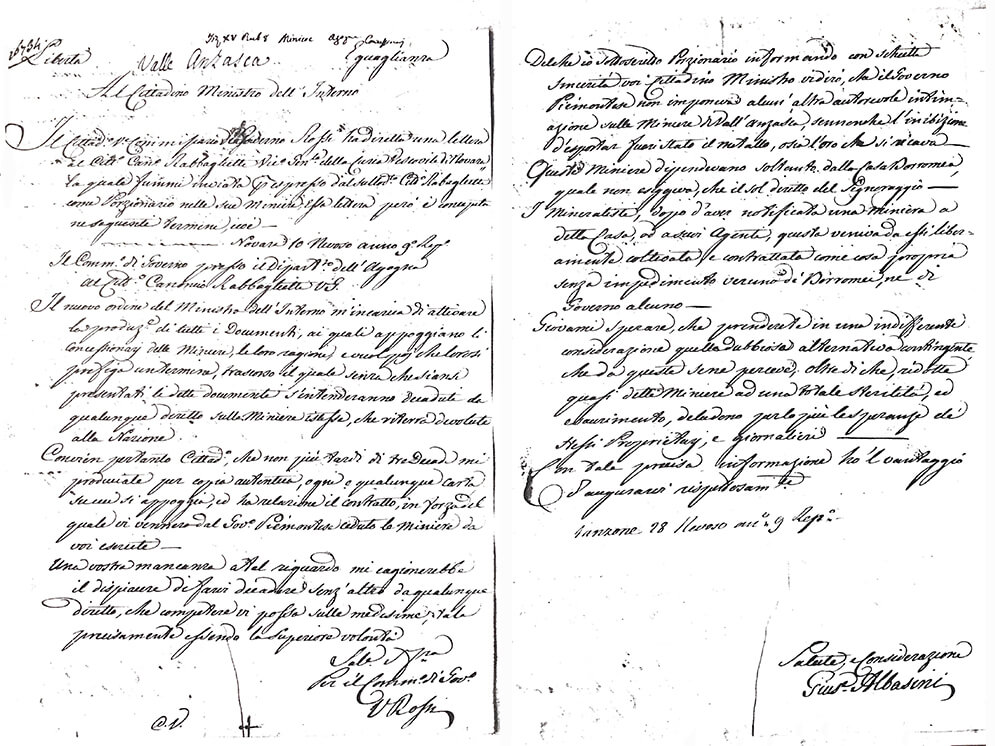 Libertà
Valle Anzasca
Al Cittadino Ministro dell'Interno
Il Cittad.º Commissario Governo Rossi ha diretta una lettera
al Citt.º Can.º Rabbaglietti Vic.º Gen.le della Curia Vescovile di Novara
la quale fummi inviata espresso dal sudd.º Citt.º Rabaglietti
come Porzionario nelle sue Miniere. Essa lettera però è concepita
ne seguenti termini, cioè —
Novara 10 Nevoso anno 9.º Rep.º
Il Comm.º di Governo presso il Dipart.º dell'Agogna
Al Citt.º Canonico Rabbaglietti V.G.
Il nuovo ordine del Ministro dell'Interno m'incarica di attivare
la produz.e di tutti i Documenti, ai quali appoggiano li
concessionarj delle Miniere, le loro ragioni, e vuol poi, che loro si
prefiga un termine, trascorso il quale senza che siansi
presentati li detti documenti s'intenderanno decaduti da
qualunque diritto sulle Miniere istesse, che ritorna devolute
alla Nazione
Convien pertanto Cittad.º, che non più tardi di tre Decadi mi
produciate per copia autentica, ogni e qualunque carta
su cui si appoggia, ed ha relazione il contratto, in forza del
quale vi vennero dal Gov.º Piemontese cedute le Miniere da
voi esercite —
Una vostra mancanza a tal riguardo mi cagionerebbe
il dispiacere di farvi decadere senz'altro da qualunque
diritto, che competere vi possa sulle medesime, tale
precisamente essendo la superiore volontà
Per il Comm.º di Gov.º
V Rossi
Delche io Sottoscritto Porzionario informando con schietta
sincerità voi Cittadino Ministro vi dirò, che il Governo
Piemontese non imponeva alcun'altra autorevole intim-
azione sulle Miniere di Vall'Anzasca, sennonche l'inibizione
d'esportar fuori stato il metallo, osia l'oro che si ricava —
Queste Miniere dipendevano soltanto dalla Casa Borromea,
quale non esiggeva, che il sol diritto del Signoraggio —
I Mineralisti, dopo d'aver notificata una miniera a
detta Casa, o a suoi Agenti, questa veniva da essi liber-
amente coltivata, e contrattata come cosa propria
senza impedimento veruno di Borromei, ne di
Governo alcuno —
Giovami sperare, che prenderete in una indifferente
considerazione quella dubbiosa alternativa contingente
che da queste sene percepe, oltre di che, ridotte
quasi dette Miniere ad una totale sterilità, ed
esaurimento, deludono per lo più le speranze de
stessi Proprietarj, e giornalieri —
Con tale precisa informazione ho'l vantaggio
d'augurarvi rispettosam.te
28 Nevoso an.º 9 Rep.º
Salute, e Considerazione
Gius.e Albasini